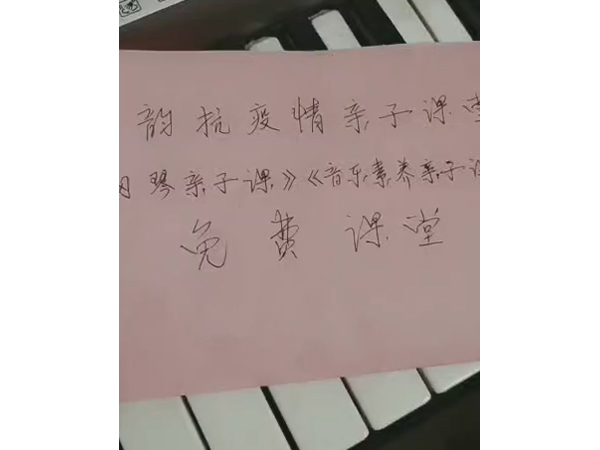 韵抗疫情亲子课堂
琴亲子课》《音乐素养亲子课
免费课堂